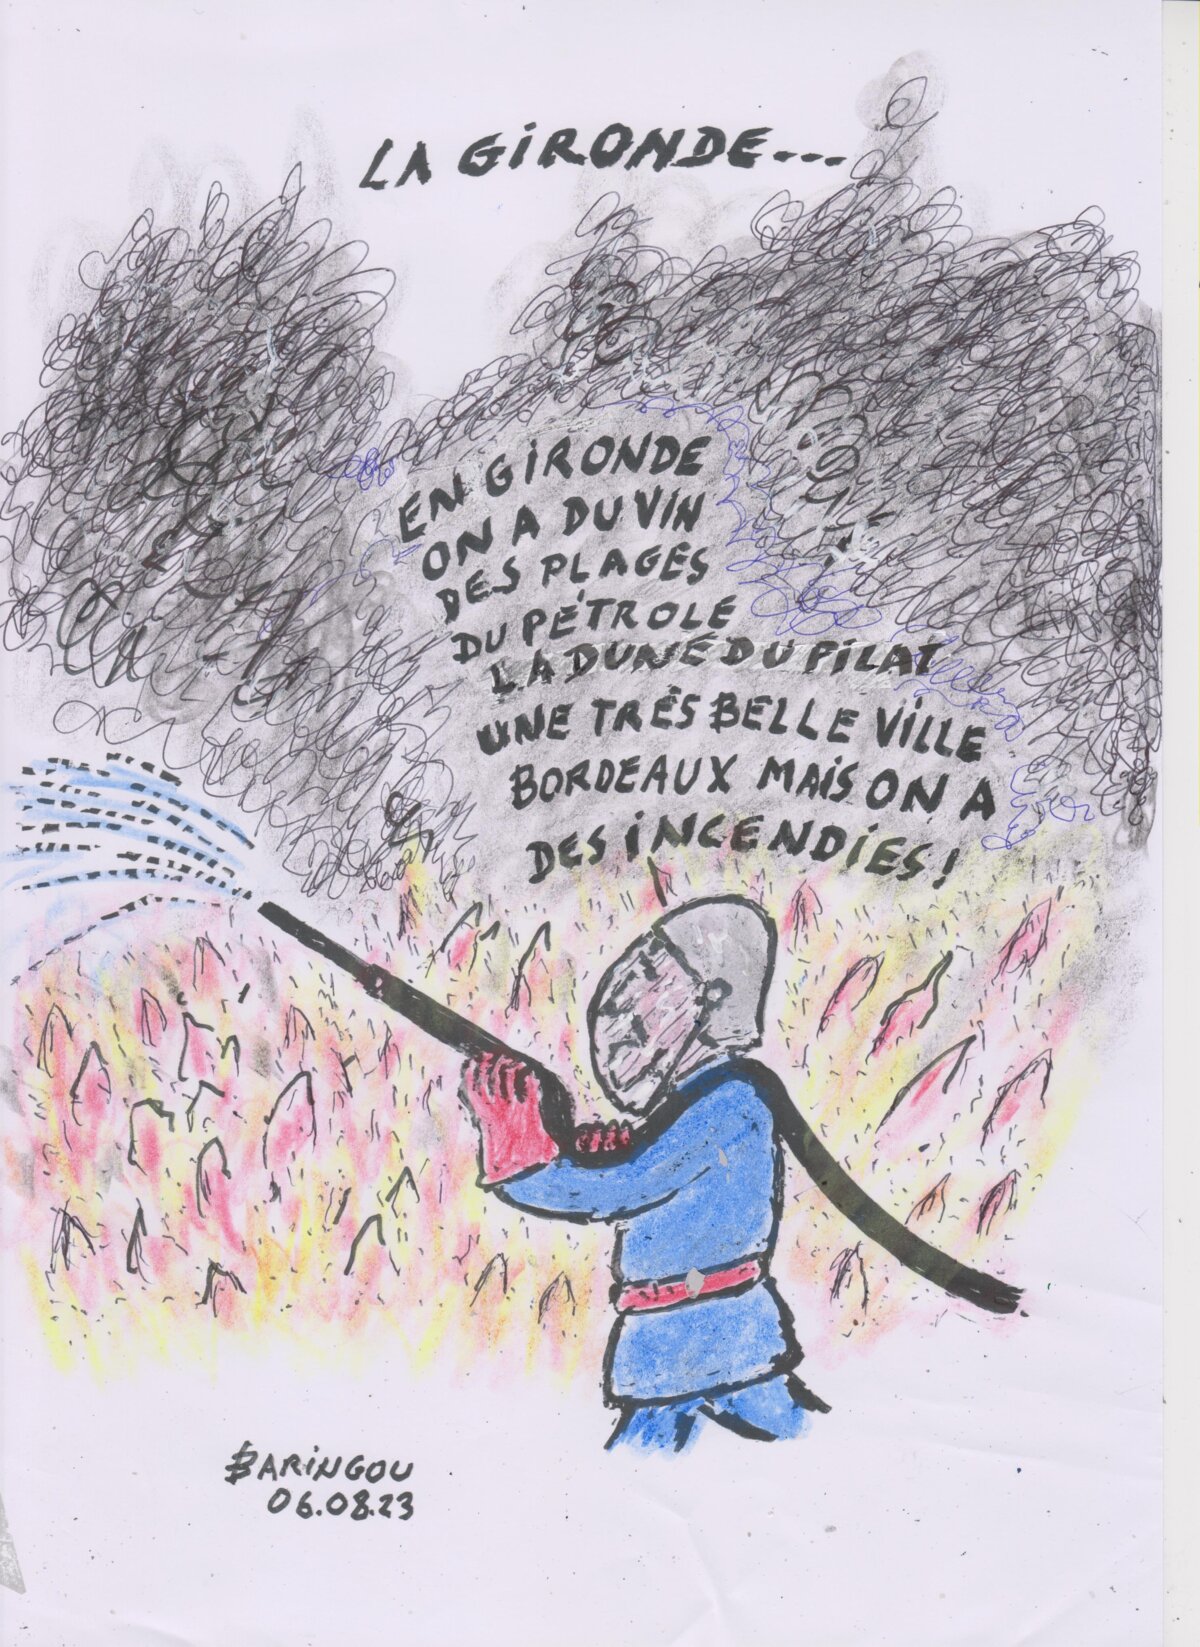 LA GIRONDE...
EN GIRONDE
ON A DU VIN
DES PLAGES
DU PÉTROLE
LA DUNE DU PILAT
UNE TRÈS BELLE VILLE
BORDEAUX MAIS ON A
DES INCENDIES !
BARINGOU
06.08.23